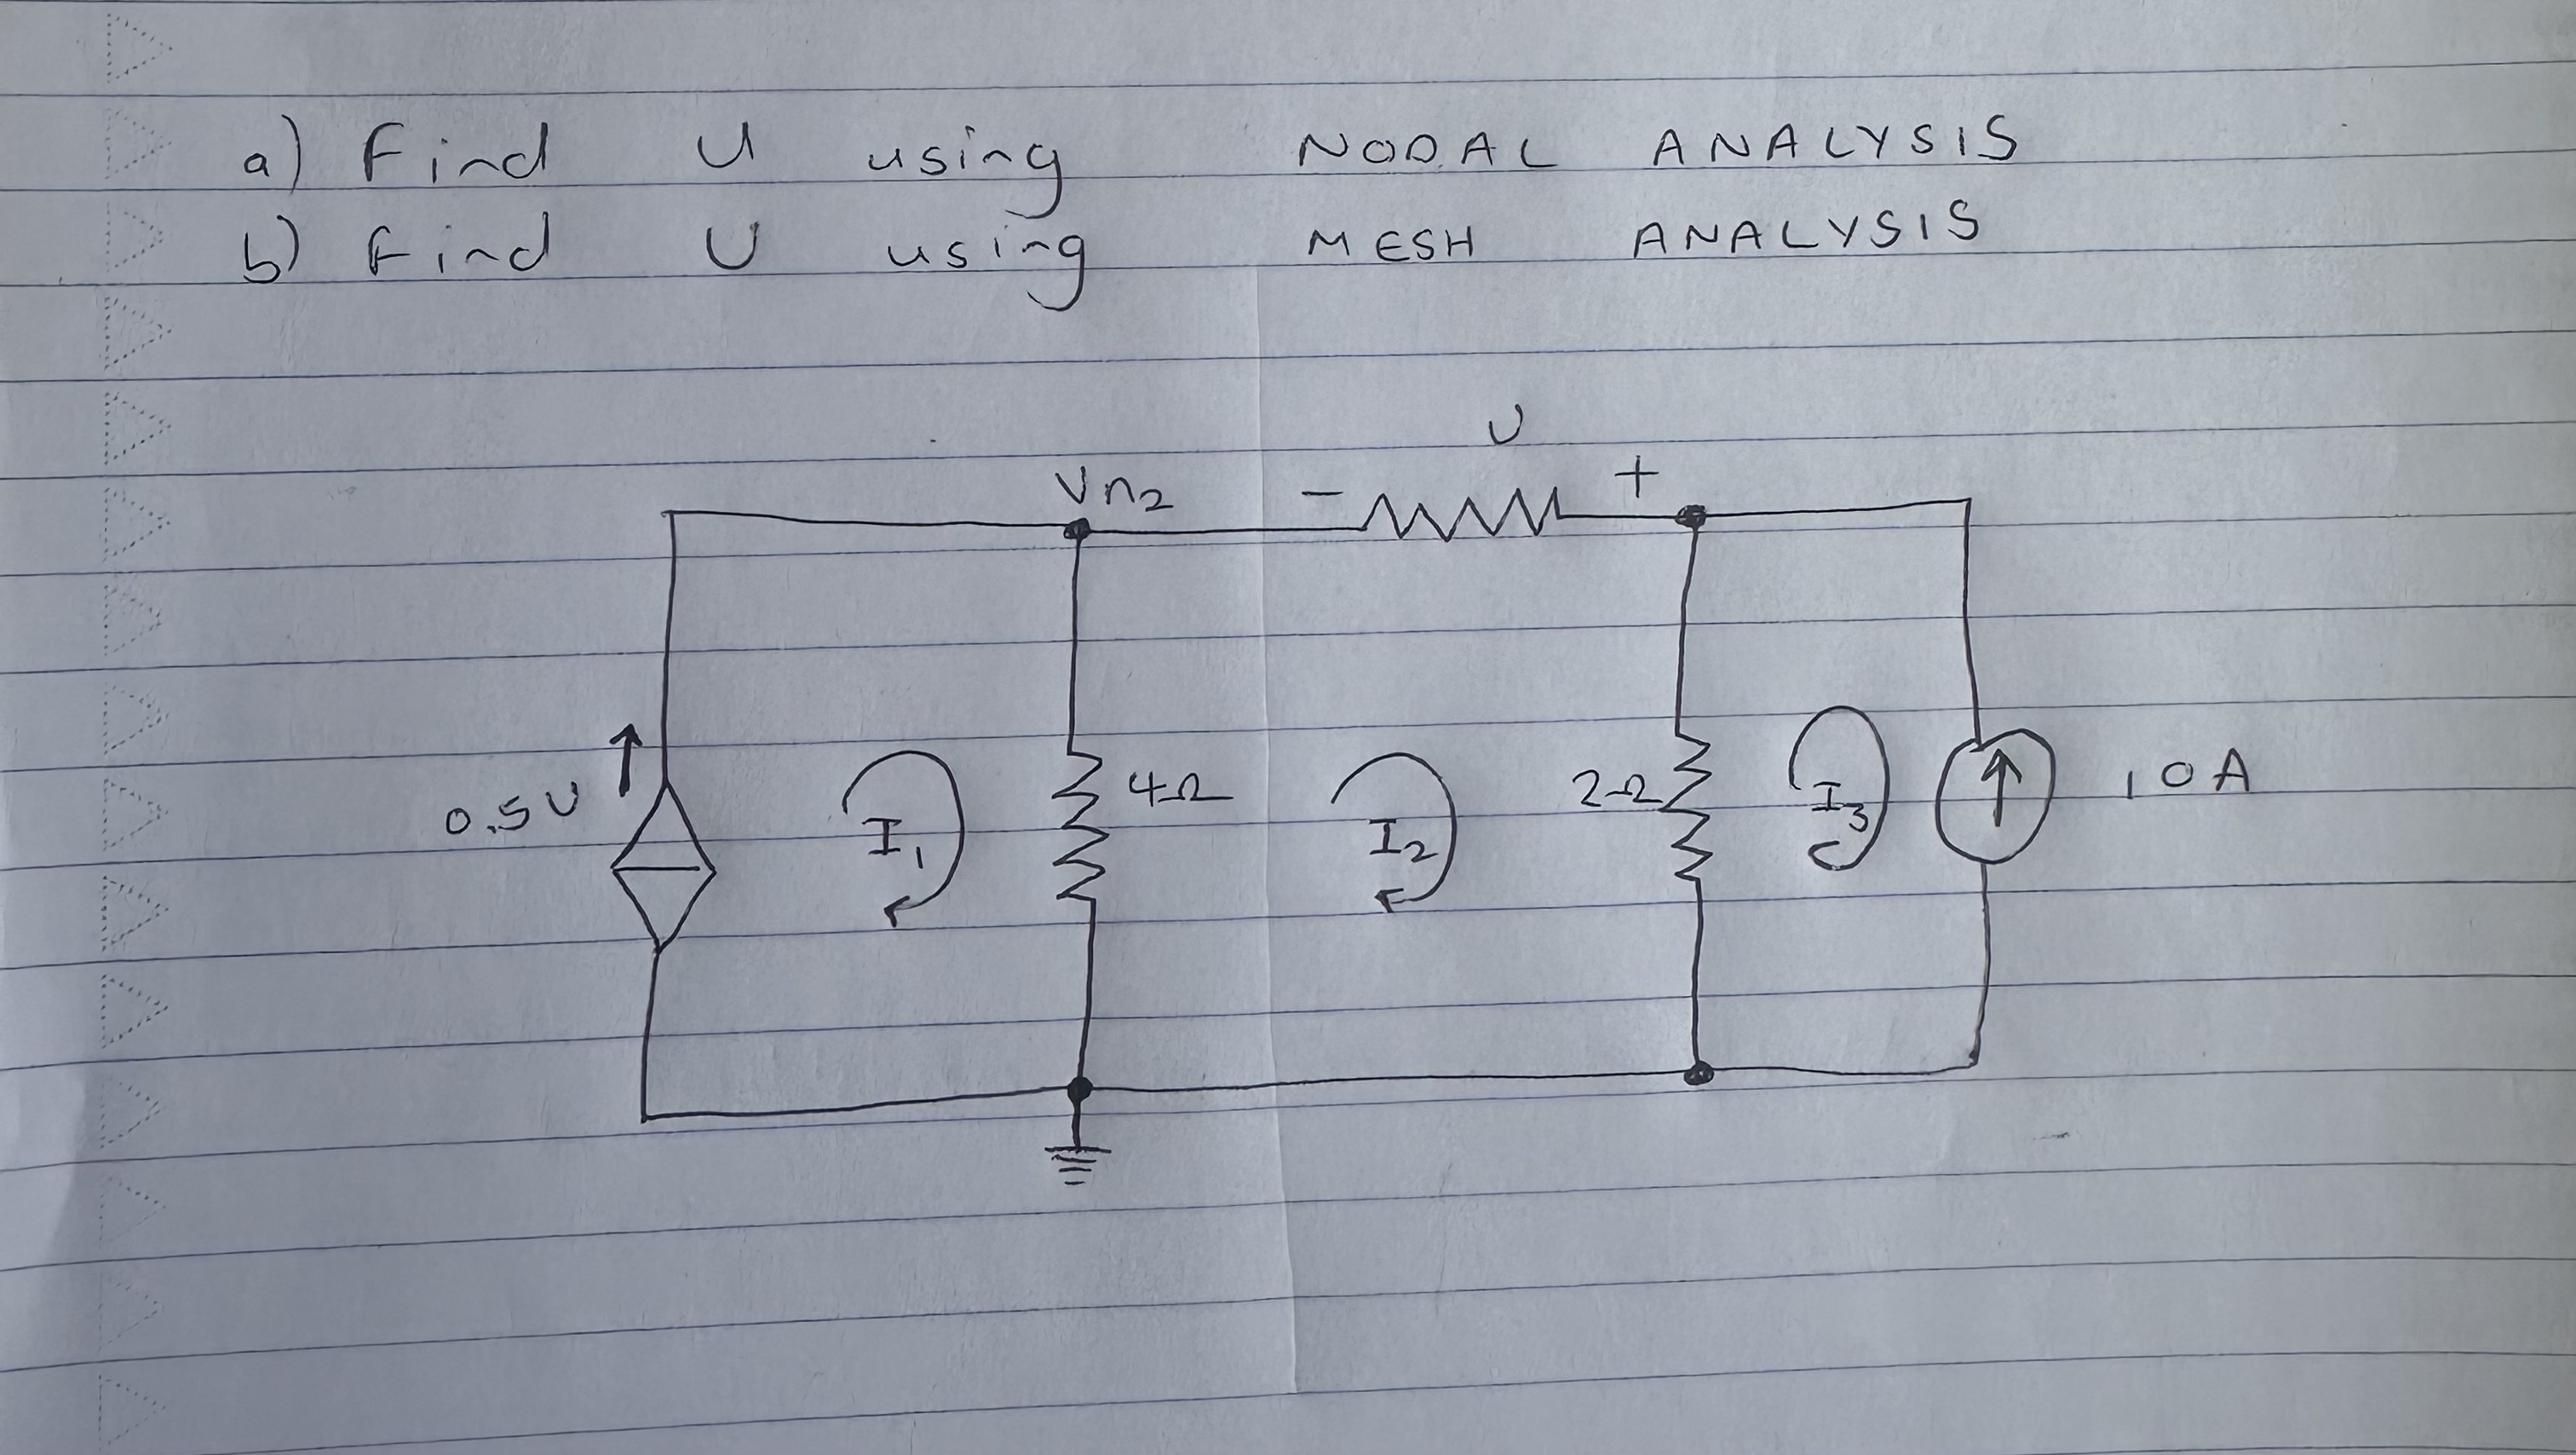 a) Find U using NODAL ANALYSIS
b) Find U using MESH ANALYSIS
U
Vn2 - +
0.5U I1 4Ω I2 2Ω I3 10A